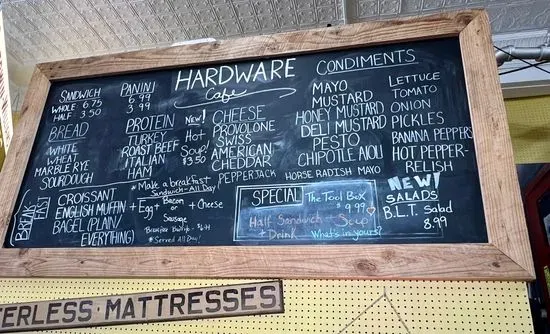 HARDWARE
Cafe
SANDWICH
WHOLE 6.75
HALF 3.50
BREAD
WHITE
WHEAT
MARBLE RYE
SOURDOUGH
PANINI
6.99
3.99
PROTEIN
TURKEY
ROAST BEEF
ITALIAN
HAM
New!
Hot
Soup!
$3.50
CHEESE
PROVOLONE
SWISS
AMERICAN
CHEDDAR
PEPPERJACK
CONDIMENTS
MAYO
MUSTARD
HONEY MUSTARD
DELI MUSTARD
PESTO
CHIPOTLE AIOLI
HORSE RADISH MAYO
LETTUCE
TOMATO
ONION
PICKLES
BANANA PEPPERS
HOT PEPPER-
RELISH
BREAKFAST
CROISSANT
ENGLISH MUFFIN
BAGEL (PLAIN/
EVERYTHING)
*Make a breakfast
Sandwich-All Day!
+Egg+ Bacon or Sausage + Cheese
*Served All Day!
SPECIAL The Tool Box
$9.99
Half Sandwich Soup
+ Drink What's in yours?
NEW!
SALADS
B.L.T. Salad
8.99
ERLESS-MATTRESSES.